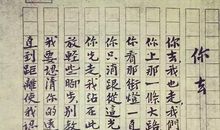 你去
你去我也走我們
你上那一條大路
你看那街燈一直
你只消跟從這光
你先走我站在此
放輕些腳步別教
我要認清你的遠
直到距離使我